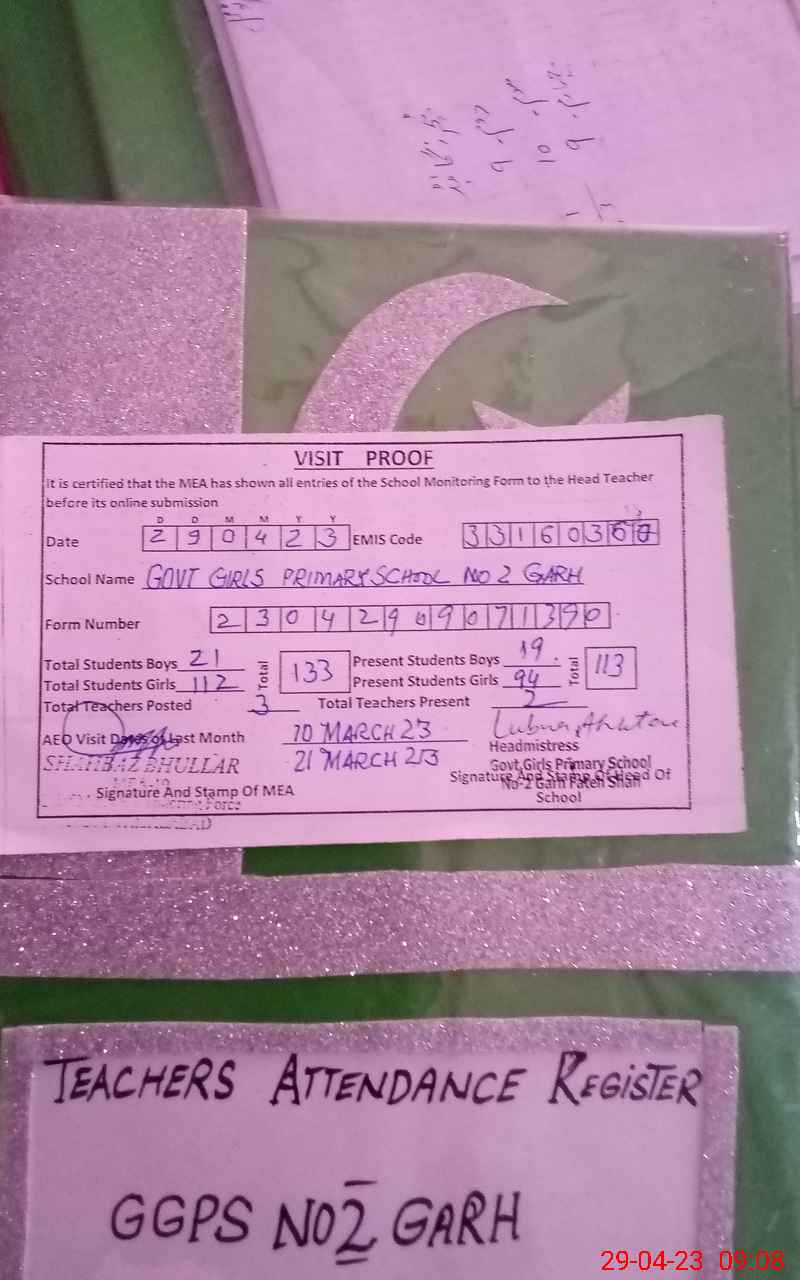 VISIT PROOF
It is certified that the MEA has shown all entries of the School Monitoring Form to the Head Teacher
before its online submission
D D M M Y Y
Date 2 9 0 4 2 3 EMIS Code 3 3 1 6 0 3
School Name GOVT GIRLS PRIMARY SCHOOL NO 2 GARH
Form Number 2 3 0 4 2 9 0 9 0 7 1 3 9 0
Total Students Boys 21 Total 133 Present Students Boys 19 Total 113
Total Students Girls 112 Present Students Girls 94
Total Teachers Posted 3 Total Teachers Present 2
AEO Visit Dates of Last Month 10 MARCH 23
21 MARCH 23
SHAHBAZ BHULLAR
Signature And Stamp Of MEA
Headmistress
Govt,Girls Primary School
No-2 Garh Fateh Shah
Signature And Stamp Of Head Of
School
TEACHERS ATTENDANCE REGISTER
GGPS NO 2 GARH
29-04-23 09:08